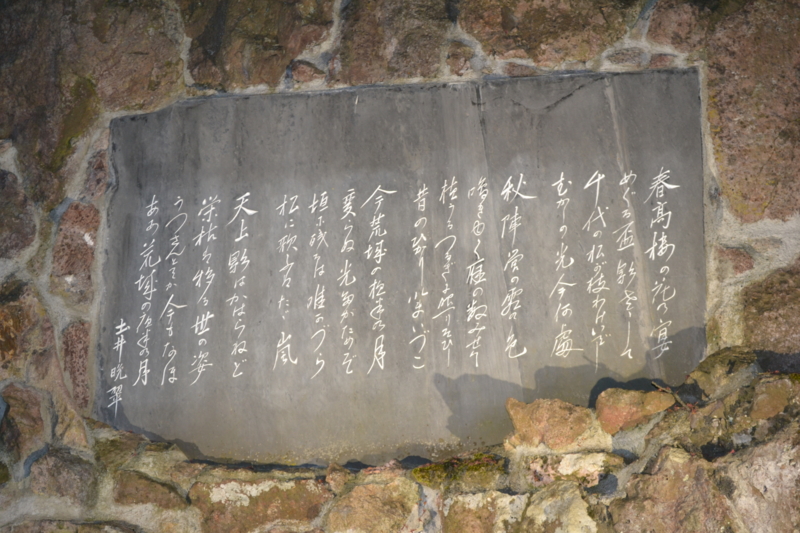 春高楼の花の宴
めぐる盃影さして
千代の松が枝わけいでし
むかしの光今何處
秋陣営の霜の色
鳴き行く雁の数見せて
植うるつるぎに照りそひし
昔のひかり今いづこ
今荒城の夜半の月
変らぬ光たがためぞ
垣に残るは唯かづら
松に歌ふはただ嵐
天上影はかはらねど
栄枯は移る世の姿
うつさんとてか今もなほ
あゝ荒城の夜半の月
土井晩翠